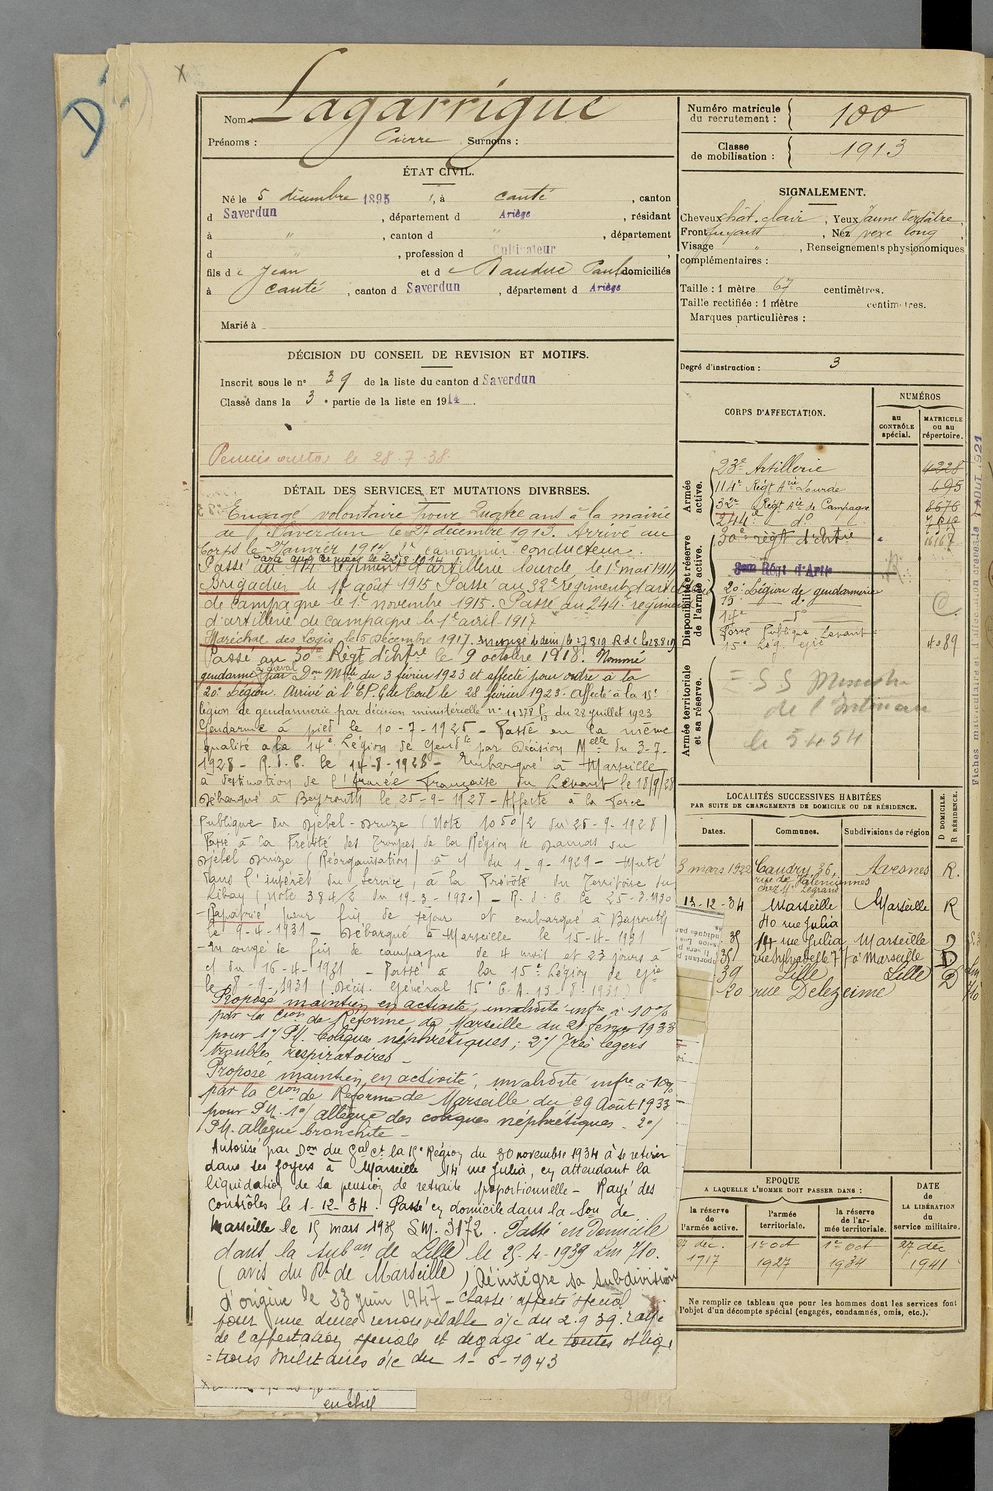 D
x
Nom Lagarrigue
Prénoms : Pierre Surnoms :
ÉTAT CIVIL.
Né le 5 décembre 1895, à Canté, canton
d Saverdun, département d Ariège, résidant
à ", canton d ", département
d ", profession d Cultivateur
fils de Jean et de Paule domiciliés
à Canté, canton d Saverdun, département d Ariège
Marié à
DÉCISION DU CONSEIL DE REVISION ET MOTIFS.
Inscrit sous le n° 39 de la liste du canton d Saverdun
Classé dans la 3e partie de la liste en 1914.
le 28-7-38.
DÉTAIL DES SERVICES ET MUTATIONS DIVERSES.
Engagé volontaire pour quatre ans à la mairie
de Saverdun le 27 décembre 1913. Arrivé au
Corps le 2 Janvier 1914, 2e canonnier conducteur.
Passé au 114e Régiment d'artillerie lourde le 1er mai 1914
Brigadier le 1er août 1915 Passé au 32e régiment d'artillerie
de campagne le 1er novembre 1915. Passé au 244e régiment
d'artillerie de campagne le 1er avril 1917
Maréchal des Logis le 6 Décembre 1917.
Passé au 30e Régt d'Artrie le 9 octobre 1918. Nommé
gendarme à cheval par Don Mlle du 3 février 1923 et affecté pour ordre à la
20e Légion. Arrivé à l'E.P.G. de Toul le 28 février 1923. Affecté à la 15e
légion de gendarmerie par décision ministérielle n° 11378 du 28 juillet 1923
Gendarme à pied le 10-7-1925 - Passé en la même
qualité à la 14e Légion de Gendie par Décision Melle du 3-7-
1928 - R.d.C. le 14-8-1928 - Embarqué à Marseille
à destination de l'Armée Française du Levant le 18/9/28
Débarqué à Beyrouth le 25-9-1928 - Affecté à la Force
Publique du Djebel-Druze (Note 1050/2 du 25-9-1928)
Passé à la Prévôté des Troupes de la Région de Damas du
Djebel Druze (Réorganisation) à c/ du 1-9-1929 - Muté
dans l'intérêt du service, à la Prévôté du Territoire du
Liban (Note 384/2 du 19-3-1930) - R.d.C. le 25-3-1930
Rapatrié pour fin de séjour et embarqué à Beyrouth
le 9-4-1931 - Débarqué à Marseille le 15-4-1931
en congé de fin de campagne de 4 mois et 23 jours à
c/ du 16-4-1931 - Passé à la 15e Légion de gie
le -9-1931 (Décis. Général 15e C.A. 13-8-1931)
Proposé maintien en activité, invalidité infre à 10%
par la Cion de Réforme de Marseille du 2 février 1933
pour 1°/ P.M. coliques néphrétiques ; 2°/ Très légers
troubles respiratoires -
Proposé maintien en activité, invalidité infre à 10%
par la Cion de Réforme de Marseille du 29 Août 1933
pour P.M. 1°/ allègue des coliques néphrétiques. 2°/
P.M. allègue bronchite -
Autorisé par Don du Gal Ct la 15e Région du 30 novembre 1934 à se retirer
dans ses foyers à Marseille, 14 rue Julia, en attendant la
liquidation de sa pension de retraite proportionnelle - Rayé des
Contrôles le 1-12-34. Passé en domicile dans la Son de
Marseille le 15 mars 1935 S.M. 3172. Passé en Domicile
dans la subon de Lille le 25-4-1939
(avis du Rt de Marseille). Réintégré sa Subdivision
d'origine le 23 juin 1947 - Classé affecté spécial
pour une durée renouvelable à/c du 2.9.39. rayé
de l'affectation spéciale et dégagé de toutes obliga
=tions militaires à/c du 1-6-1943
Numéro matricule
du recrutement : 100
Classe
de mobilisation : 1913
SIGNALEMENT.
Cheveux chât. clair, Yeux jaune verdâtre,
Front fuyant, Nez vexe long,
Visage ", Renseignements physionomiques
complémentaires :
Taille : 1 mètre 67 centimètres.
Taille rectifiée : 1 mètre centimètres.
Marques particulières :
Degré d'instruction : 3
CORPS D'AFFECTATION.
NUMÉROS
au
CONTRÔLE
spécial.
MATRICULE
ou au
répertoire.
Armée
active.
23e Artillerie 4328
114e Régt Arie Lourde 695
32e Régt Arie de Campagne
244e do
Disponibilité et réserve
de l'armée active.
30e régt d'Artrie
Régt d'Artie
20e Légion de gendarmerie
15e do
14e do
Force Publique Levant
15e Lég. gie 4089
Armée territoriale
et sa réserve.
= S S Ministre
de l'Intérieur
le 5454
LOCALITÉS SUCCESSIVES HABITÉES
PAR SUITE DE CHANGEMENTS DE DOMICILE OU DE RÉSIDENCE.
D DOMICILE.
R RÉSIDENCE.
Dates. Communes. Subdivisions de région
3 mars 1922 Caudry 36, Avesnes R.
rue de Valenciennes
chez Mr Legrand
13-12-34 Marseille Marseille R
40 rue Julia
35 14 rue Julia Marseille D
35 rue Sylvabelle 7 à Marseille D
39 Lille Lille D
20 rue Delezenne
EPOQUE
A LAQUELLE L'HOMME DOIT PASSER DANS :
DATE
de
LA LIBÉRATION
du
service militaire.
la réserve
de
l'armée active.
l'armée
territoriale.
la réserve
de l'ar-
mée territoriale.
27 déc. 1er oct 1er oct 27 déc
1917 1927 1934 1941
Ne remplir ce tableau que pour les hommes dont les services font
l'objet d'un décompte spécial (engagés, condamnés, omis, etc.).